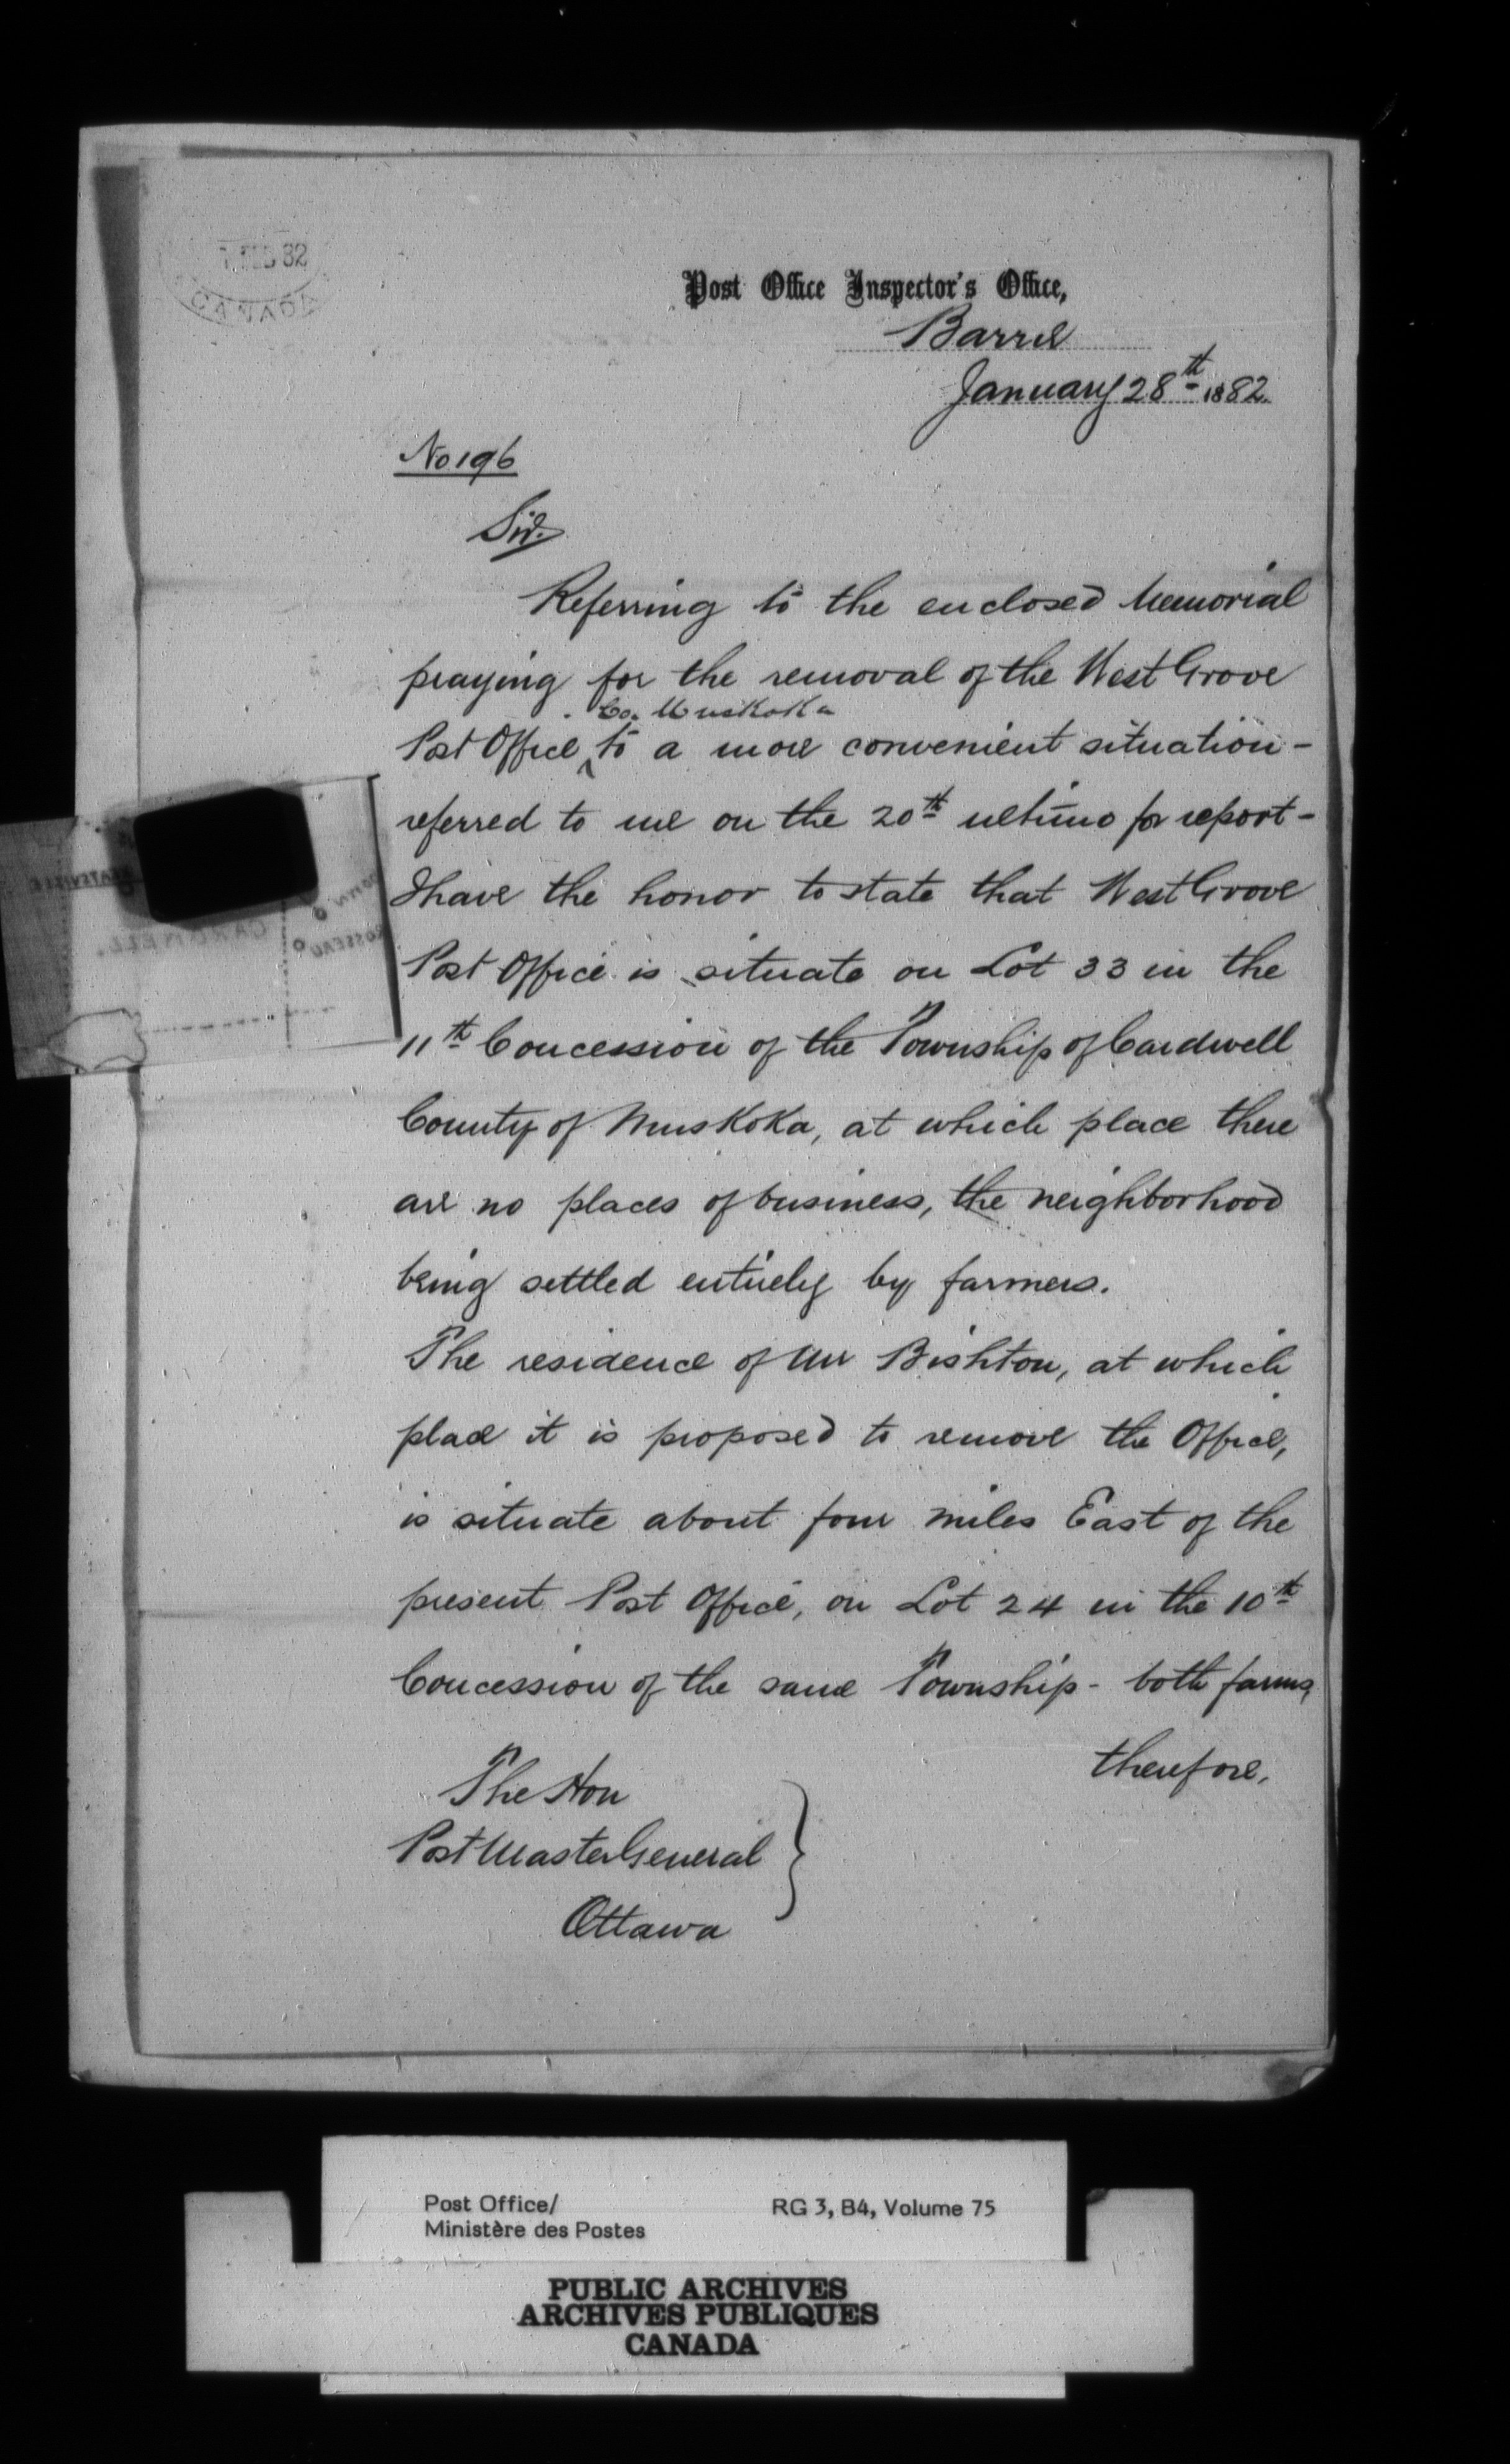 FEB 82
CANADA
Post Office Inspector's Office,
Barrie
January 28th 1882.
No 196
Sir.
Referring to the enclosed Memorial
praying for the removal of the West Grove
Co. Muskoka
Post Office to a more convenient situation -
referred to me on the 20th ultimo for report -
I have the honor to state that West Grove
Post Office is situate on Lot 33 in the
11th Concession of the Township of Cardwell
County of Muskoka, at which place there
are no places of business, the neighborhood
being settled entirely by farmers.
The residence of Mr Bishton, at which
place it is proposed to remove the Office,
is situate about four miles East of the
present Post Office, on Lot 24 in the 10th
Concession of the same Township - both farms
therefore,
The Hon
Post Master General
Ottawa
CARDWELL.
ROSSEAU
Post Office/
Ministère des Postes
RG 3, B4, Volume 75
PUBLIC ARCHIVES
ARCHIVES PUBLIQUES
CANADA